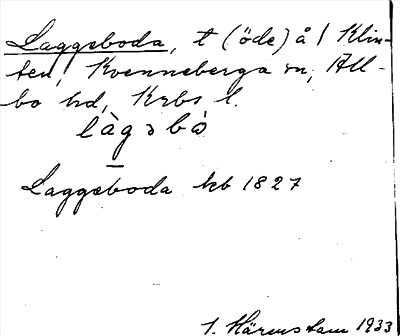 Laggeboda, t (öde) å / Klin-
ten, Kvenneberga sn, All-
bo hd, Krbs l.
làgəbò
Laggeboda kb 1827
I. Härenstam 1933